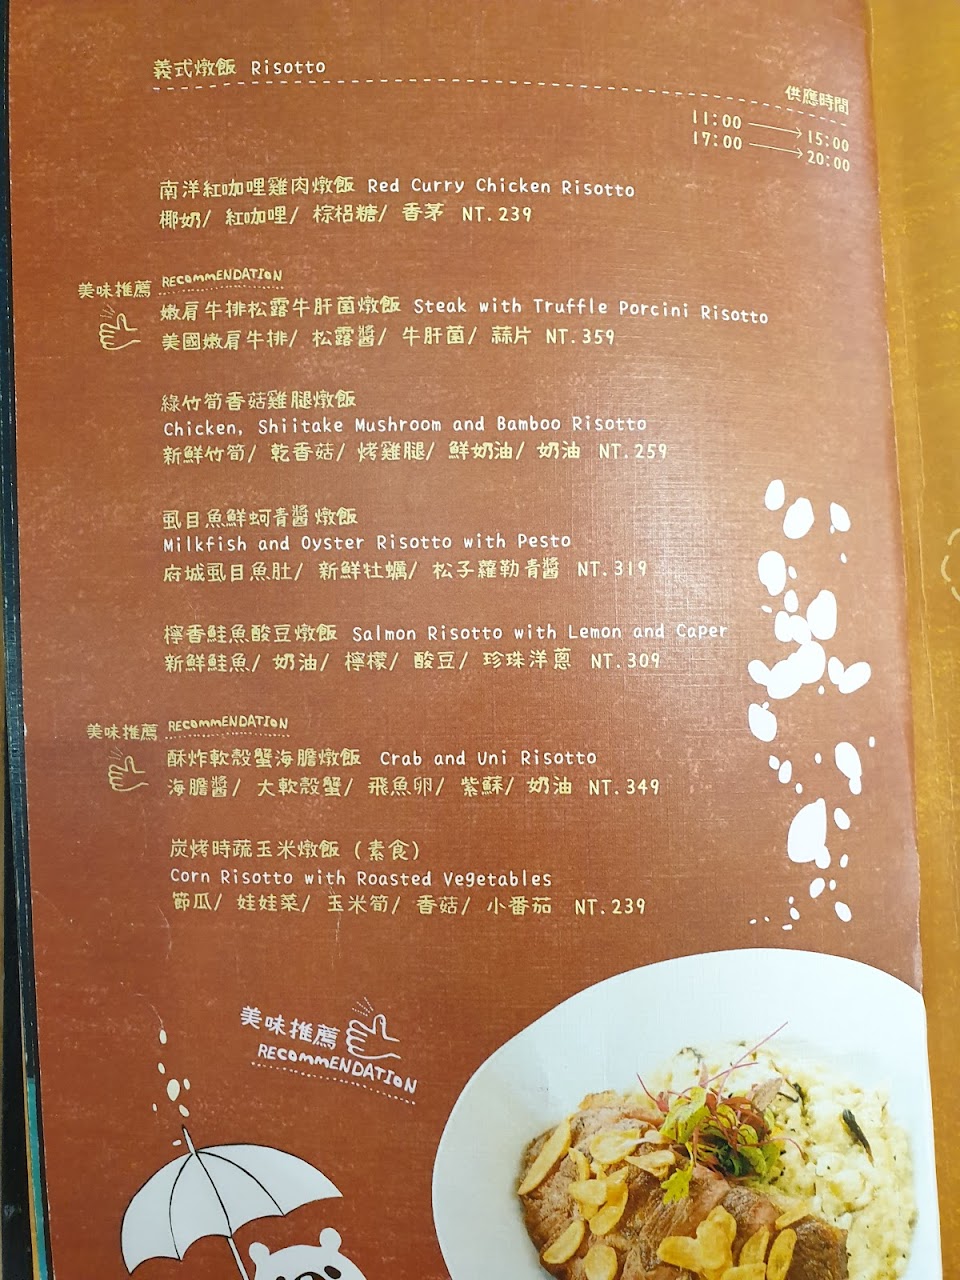 義式燉飯 Risotto
供應時間
11:00 → 15:00
17:00 → 20:00
南洋紅咖哩雞肉燉飯 Red Curry Chicken Risotto
椰奶/ 紅咖哩/ 棕梠糖/ 香茅 NT.239
美味推薦 RECOMMENDATION
嫩肩牛排松露牛肝菌燉飯 Steak with Truffle Porcini Risotto
美國嫩肩牛排/ 松露醬/ 牛肝菌/ 蒜片 NT.359
綠竹筍香菇雞腿燉飯
Chicken, Shiitake Mushroom and Bamboo Risotto
新鮮竹筍/ 乾香菇/ 烤雞腿/ 鮮奶油/ 奶油 NT.259
虱目魚鮮蚵青醬燉飯
Milkfish and Oyster Risotto with Pesto
府城虱目魚肚/ 新鮮牡蠣/ 松子蘿勒青醬 NT.319
檸香鮭魚酸豆燉飯 Salmon Risotto with Lemon and Caper
新鮮鮭魚/ 奶油/ 檸檬/ 酸豆/ 珍珠洋蔥 NT.309
美味推薦 RECOMMENDATION
酥炸軟殼蟹海膽燉飯 Crab and Uni Risotto
海膽醬/ 大軟殼蟹/ 飛魚卵/ 紫蘇/ 奶油 NT.349
炭烤時蔬玉米燉飯 (素食)
Corn Risotto with Roasted Vegetables
節瓜/ 娃娃菜/ 玉米筍/ 香菇/ 小番茄 NT.239
美味推薦
RECOMMENDATION